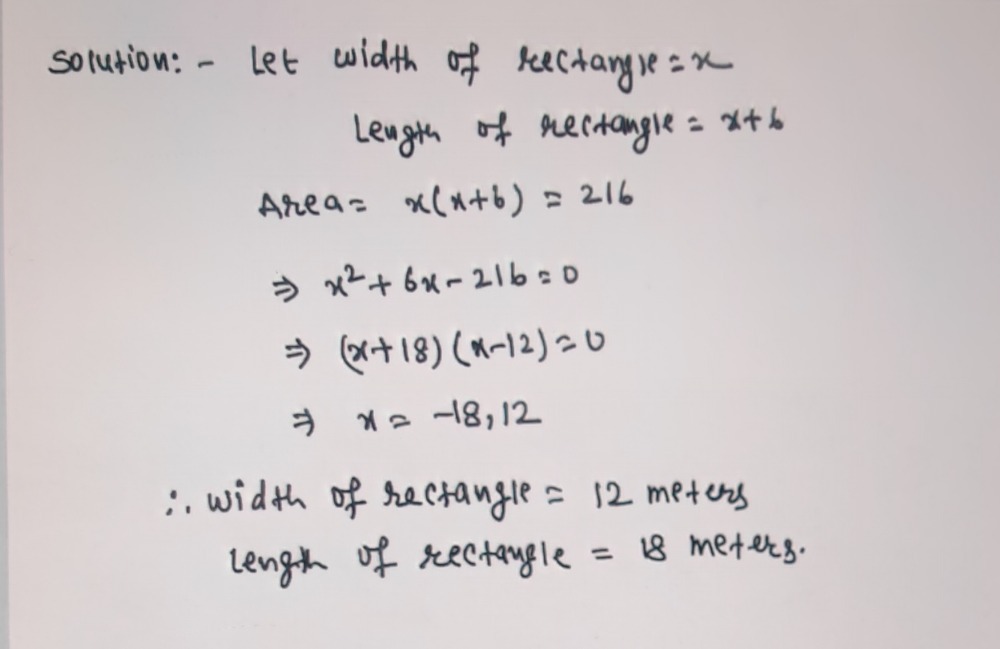 Solution: - Let width of rectangle = x
Length of rectangle = x+6
Area = x(x+6) = 216
⇒ x² + 6x - 216 = 0
⇒ (x+18) (x-12) = 0
⇒ x = -18, 12
∴ width of rectangle = 12 meters
Length of rectangle = 18 meters.